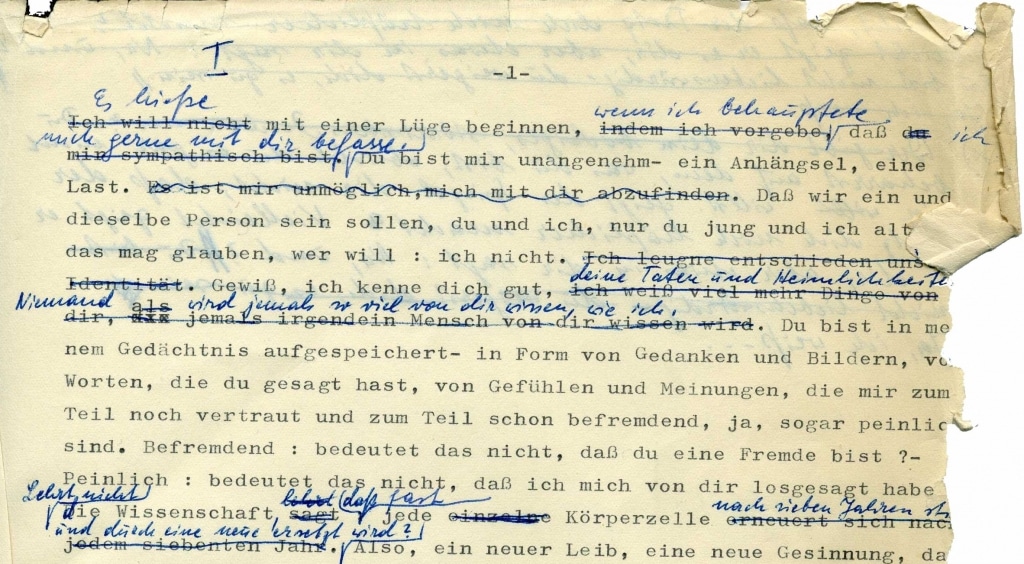 I
-1-
Es hieße wenn ich behauptete
Ich will nicht mit einer Lüge beginnen, indem ich vorgebe, daß du ich
mich gerne mit dir befasse.
mir sympathisch bist. Du bist mir unangenehm- ein Anhängsel, eine
Last. Es ist mir unmöglich,mich mit dir abzufinden. Daß wir ein und
dieselbe Person sein sollen, du und ich, nur du jung und ich alt
das mag glauben, wer will : ich nicht. Ich leugne entschieden uns
deine Taten und Heimlichkeite
Identität. Gewiß, ich kenne dich gut, ich weiß viel mehr Dinge von
Niemand als wird jemals so viel von dir wissen, wie ich.
dir, jemals irgendein Mensch von dir wissen wird. Du bist in me
nem Gedächtnis aufgespeichert- in Form von Gedanken und Bildern, vo
Worten, die du gesagt hast, von Gefühlen und Meinungen, die mir zum
Teil noch vertraut und zum Teil schon befremdend, ja, sogar peinlic
sind. Befremdend : bedeutet das nicht, daß du eine Fremde bist ?-
Peinlich : bedeutet das nicht, daß ich mich von dir losgesagt habe
Lehrt nicht lehrt daß fast nach sieben Jahren
die Wissenschaft sagt jede einzelne Körperzelle erneuert sich nach
und durch eine neue ersetzt wird?
jedem siebenten Jahr. Also, ein neuer Leib, eine neue Gesinnung, da